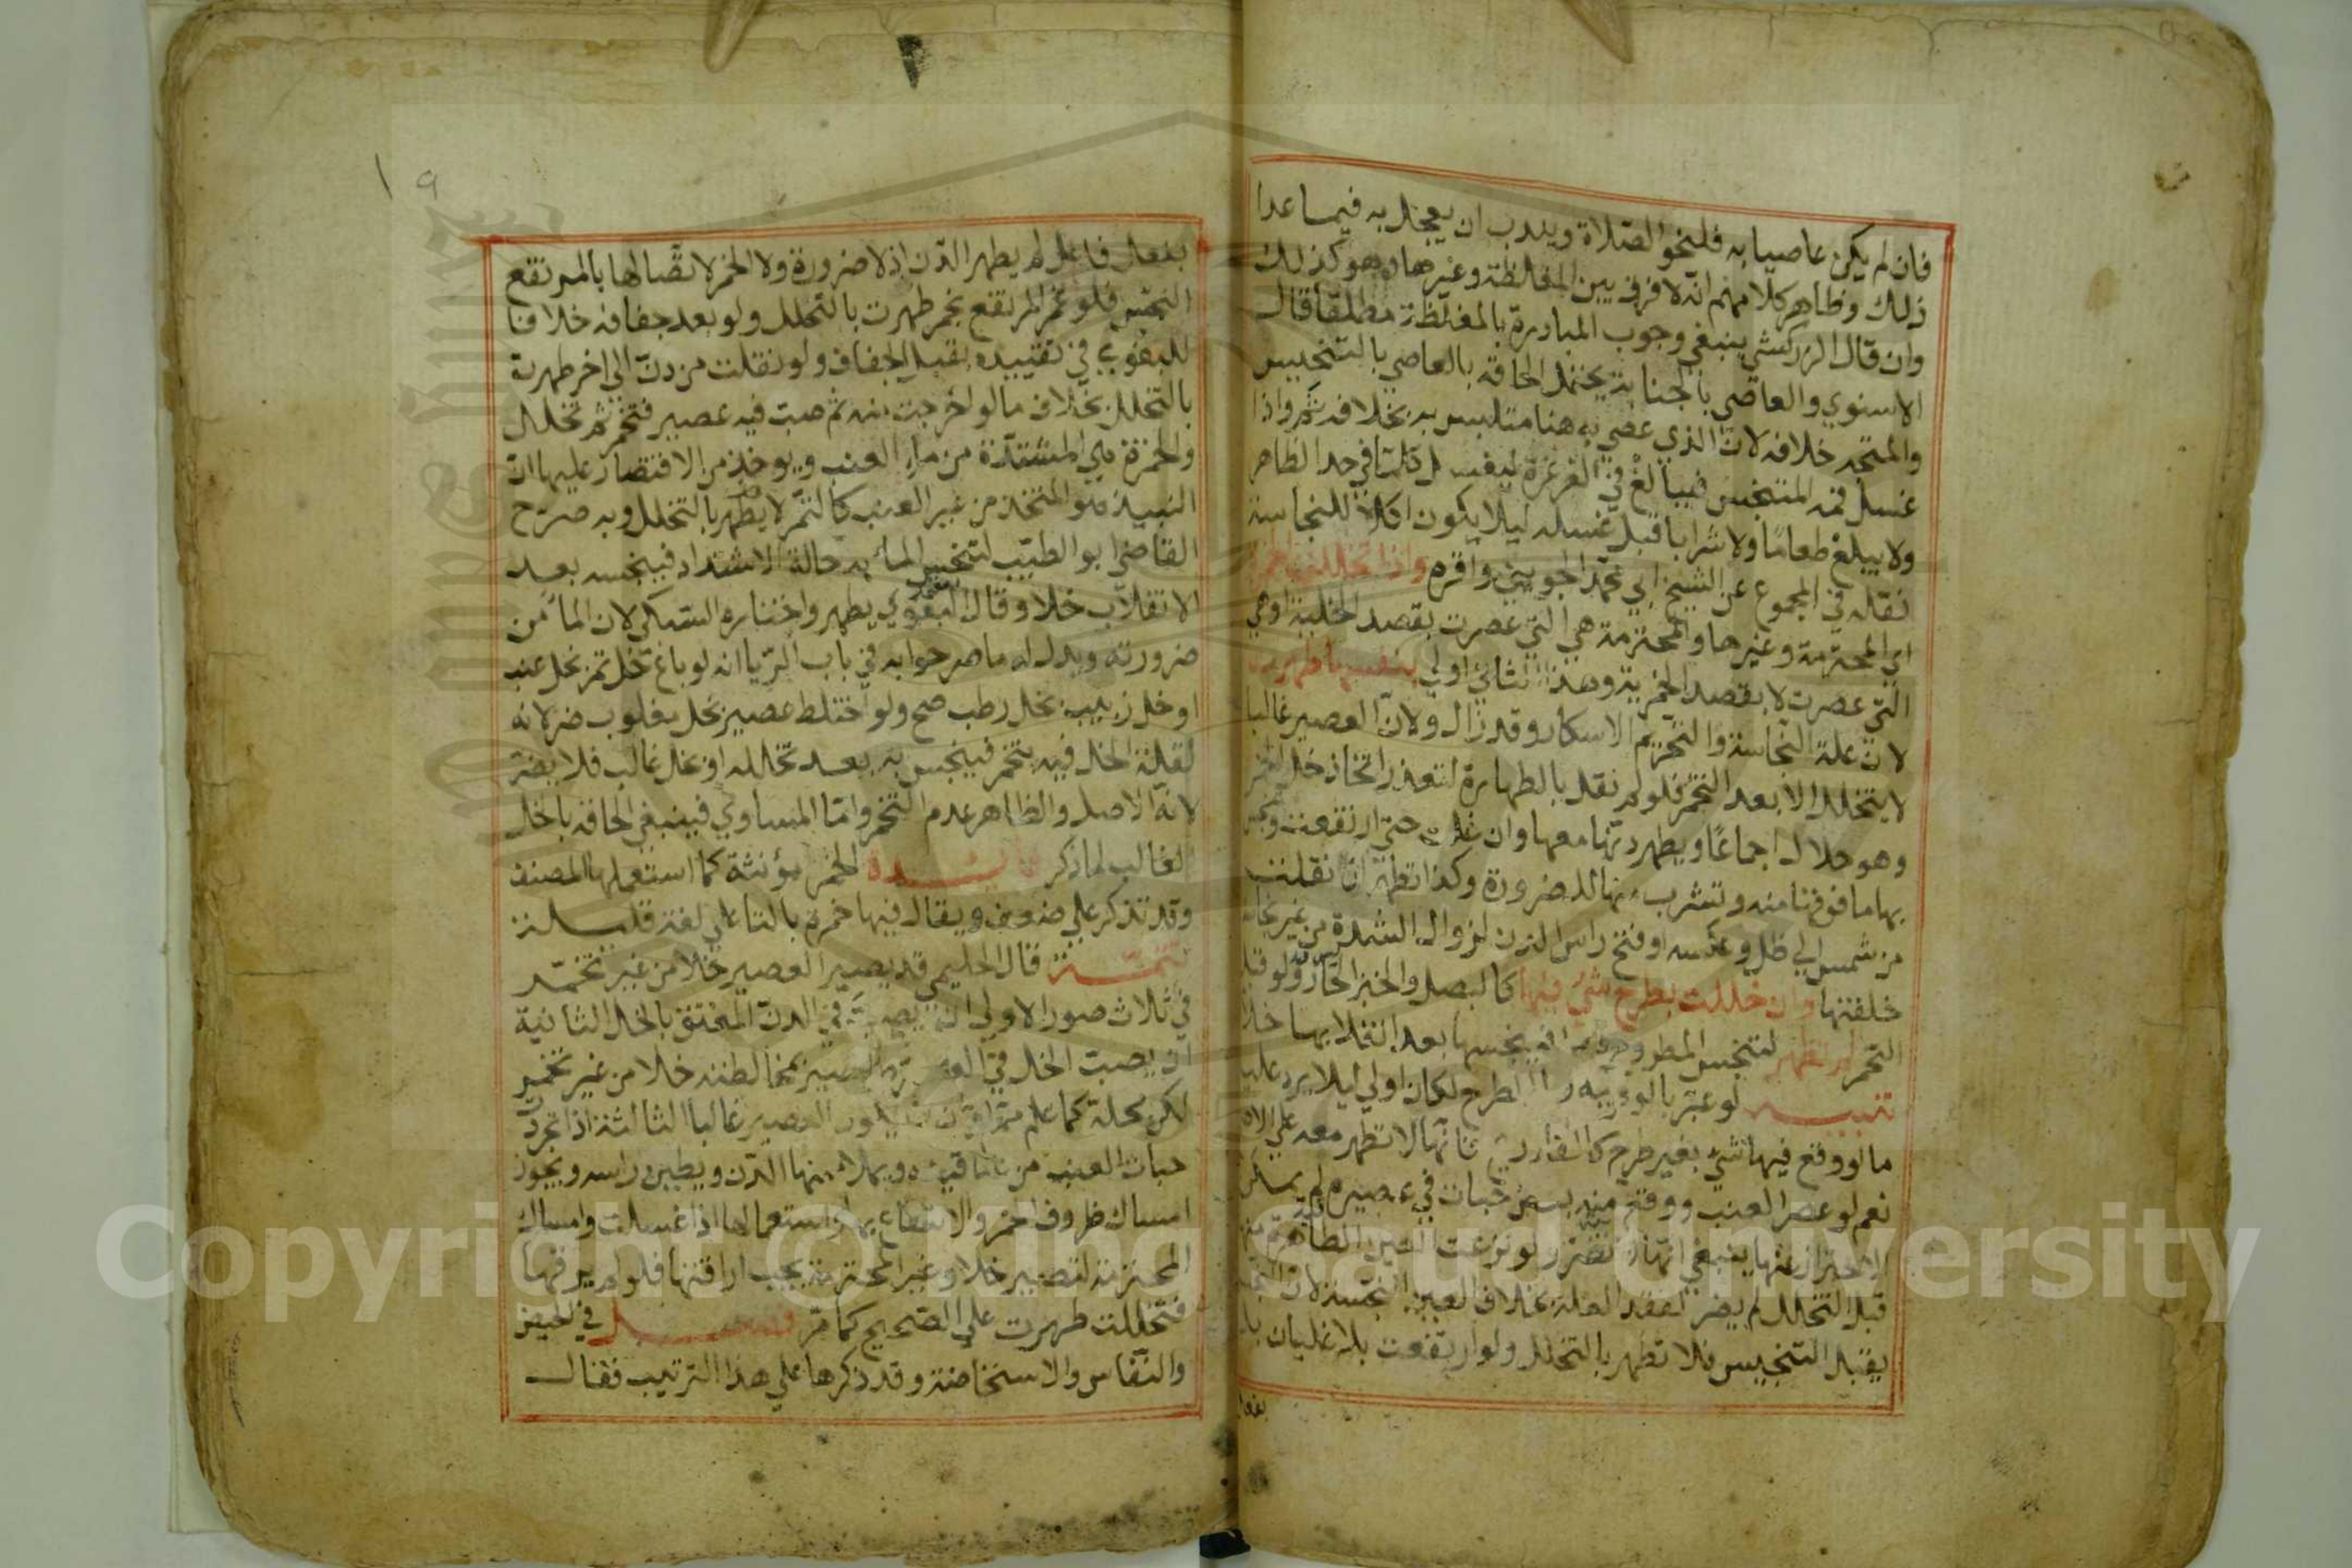 فان لم يكن عاصيا به فلنحو الصلاة ويندب ان يعجل به فيما عدا
ذلك وظاهر كلامهم انه لا فرق بين المغلظة وغيرها وهو كذلك
وان قال الزركشي ينبغي وجوب المبادرة بالمغلظة مطلقا قال
الاسنوي والعاصي بالجنابة يحتمل الحاقه بالعاصي بالتنجيس
والمتجه خلافه لان الذي عصي به هنا متلبس به بخلافه ثم واذا
غسل فمه المتنجس فيبالغ في الغرغرة ليغسل كلما في حد الظاهر
ولا يبلغ طعاما ولا شرابا قبل غسله ليلا يكون اكلا للنجاسة
نقله في المجموع عن الشيخ ابي محمد الجويني واقره واذا تخللت الخمرة
اي المحترمة وغيرها والمحترمة هي التي عصرت بقصد الخلية اوهي
التي عصرت لا بقصد الخمرية وهذا الثاني اولي بنفسها طهرت
لان علة النجاسة والتحريم الاسكار وقد زال ولان العصير غالبا
لا يتخلل الا بعد التخمر فلو لم نقل بالطهارة لتعذر اتخاذ خل الخمر
وهو حلال اجماعا ويطهر دنها معها وان غلت حتى ارتفعت وتنجس
بها ما فوقها منه وتشرب منها للضرورة وكذا تطهر ان نقلت
من شمس الي ظل وعكسه او فتح راس الدن لزوال الشدة من غير نجاسة
خلفتها وان خللت بطرح شي فيها كالبصل والخبز الحار ولو قبل
التخمر لم تطهر لتنجس المطروح بها فينجسها بعد انقلابها خلا
تنبيه لو عبر بالوقوع بدل الطرح لكان اولي ليلا يرد عليه
ما لو وقع فيها شي بغير طرح كالقاء ريح فانها لا تطهر معه علي الا
نعم لو عصر العنب ووقع منه بعض حبات في عصيره لم يمكن
الاحتراز عنها ينبغي انها لا تضر ولو نزعت العين الطاهرة منه
قبل التخلل لم يضر لفقد العلة بخلاف العين النجسة لان النجس
يقبل التنجيس فلا تطهر بالتخلل ولو ارتفعت بلا غليان بل
بفعل
١٩
بفعل فاعل لم يطهر الدن اذ لا ضرورة ولا الخمر لاتصالها بالمرتفع
النجس فلو غمر المرتفع بخمر طهرت بالتخلل ولو بعد جفافه خلافا
للبغوي في تقييده بقبل الجفاف ولو نقلت من دن الي اخر طهرت
بالتخلل بخلاف ما لو اخرجت منه ثم صب فيه عصير فتخمر ثم تخلل
والخمرة هي المشتدة من ماء العنب ويوخذ من الاقتصار عليها ان
النبيذ وهو المتخذ من غير العنب كالتمر لا يطهر بالتخلل وبه صرح
القاضي ابو الطيب لتنجس الماء به حالة الاشتداد فينجسه بعد
الانقلاب خلا وقال البغوي يطهر واختاره السبكي لان الماء من
ضرورته ويدل له ما صرحوا به في باب الربا انه لو باع خل تمر بخل عنب
او خل زبيب بخل رطب صح ولو اختلط عصير بخل مغلوب ضر لانه
لقلة الخل فيه يتخمر فينجس به بعد تخلله او بخل غالب فلا يضر
لانه الاصل والظاهر عدم التخمر واما المساوي فينبغي الحاقه بالخل
الغالب لما ذكر فائدة الخمر مؤنثة كما استعملها المصنف
وقد تذكر علي ضعف ويقال فيها خمرة بالتا علي لغة قليلة
تتمة قال الحليمي قد يصير العصير خلا من غير تخمر
في ثلاث صور الاولي ان يصب في الدن المعتق بالخل الثانية
ان يصب الخل في العصير فيصير بمخالطته خلا من غير تخمر
لكن محله كما علم مما مر ان لا يكون العصير غالبا الثالثة اذا تجردت
حبات العنب من عناقيده ويملا منها الدن ويطين راسه ويجوز
امساك ظروف الخمر والانتفاع بها واستعمالها اذا غسلت وامساك
المحترمة لتصير خلا وغير المحترمة يجب اراقتها فلو لم يرقها
فتخللت طهرت علي الصحيح كما مر فصل في الحيض
والنفاس والاستحاضة وقد ذكرها علي هذا الترتيب فقال
Copyright © King Saud University